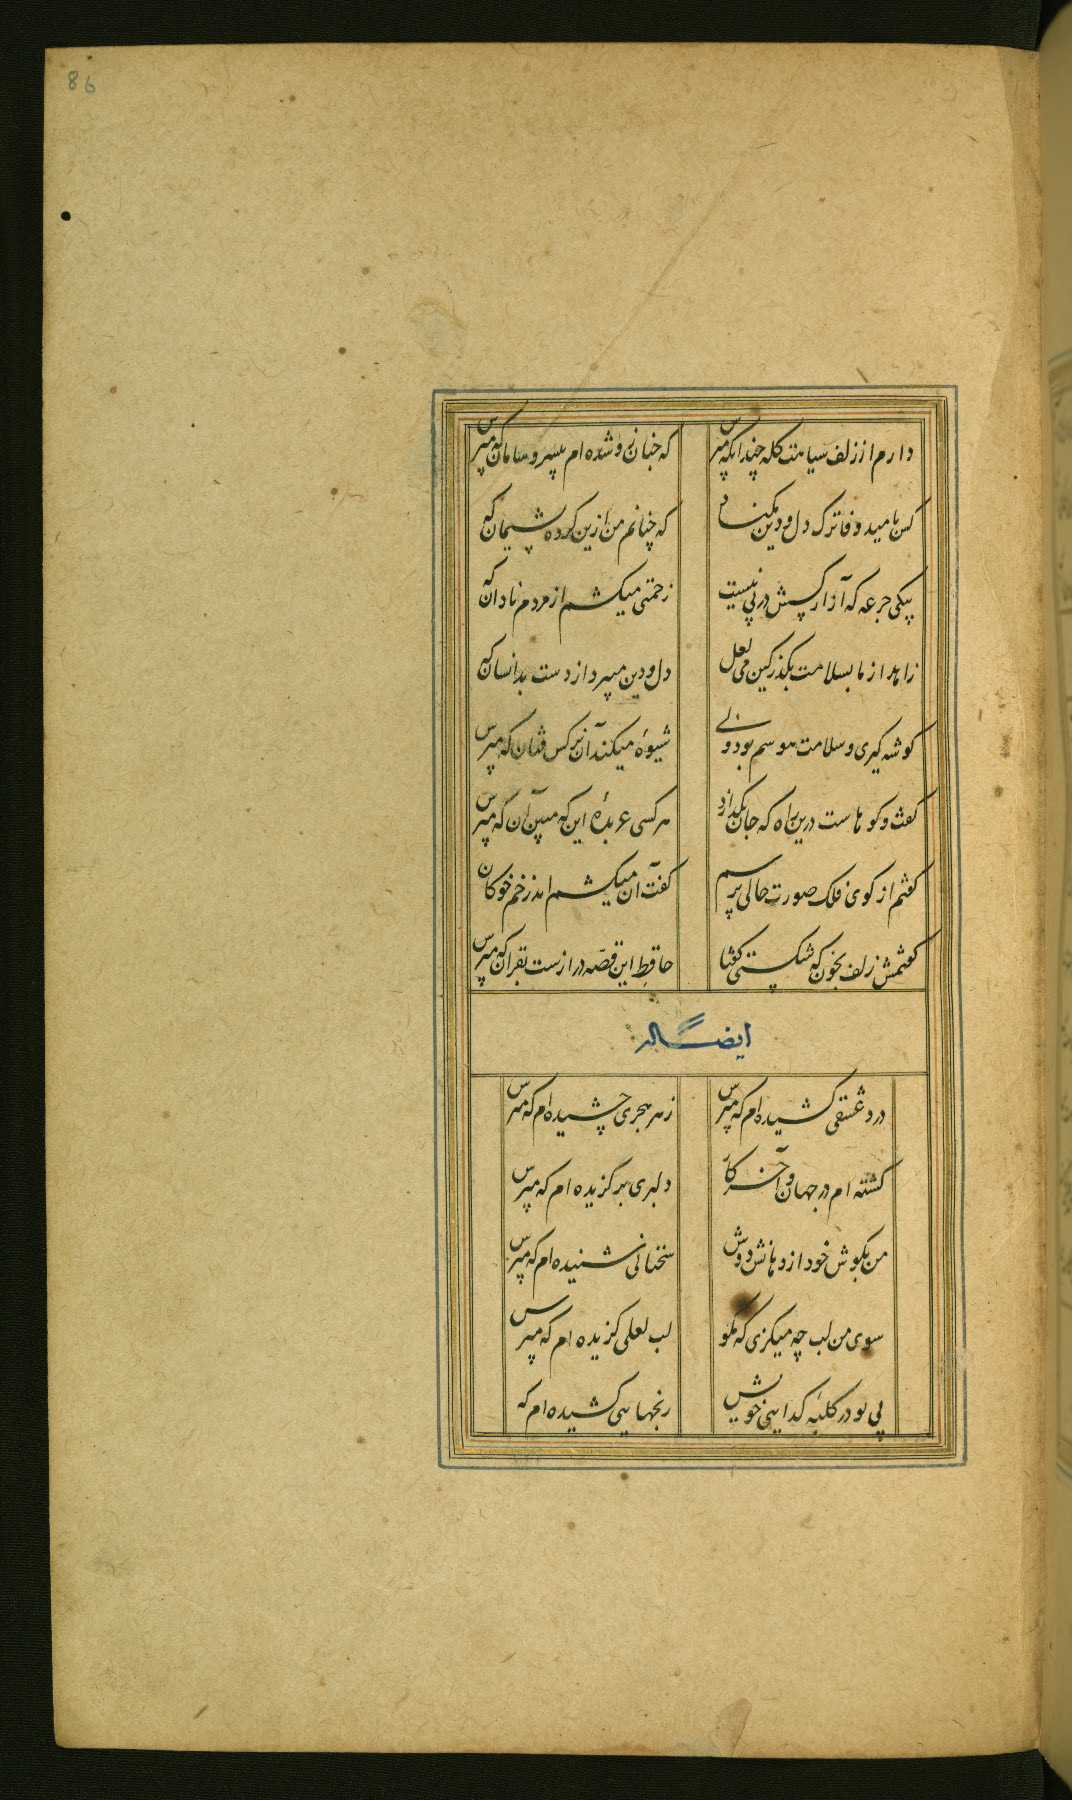 86
دارم از زلف سیاهت گله چندانکه مپرس
که چنان زو شده ام بیسر و سامان که مپرس
کس بامید وفا ترک دل و دین مکناد
که چنانم من ازین کرده پشیمان که
بیکی جرعه که آزار کسش در پی نیست
زحمتی میکشم از مردم نادان که
زاهد از ما بسلامت بگذر کین می لعل
دل و دین میبرد از دست بدانسان که
گوشه گیری و سلامت هوسم بود ولی
شیوهٔ میکند آن نرکس فتان که مپرس
گفت و گوهاست درین راه که جان بگدازد
هر کسی عربدهٔ این که مبین آن که مپرس
گفتم از گوی فلک صورت حالی پرسم
گفت آن میکشم اندر خم چوگان
گفتمش زلف بخون که شکستی گفتا
حافظ این قصه درازست بقرآن که مپرس
ایضاله
درد عشقی کشیده ام که مپرس
زهر هجری چشیده ام که مپرس
گشته ام در جهان و آخر کار
دلبری برگزیده ام که مپرس
من بگوش خود از دهانش دوش
سخنانی شنیده ام که مپرس
سوی من لب چه میگزی که مگو
لب لعلی گزیده ام که مپرس
بی تو در کلبهٔ گدایی خویش
رنجهایی کشیده ام که